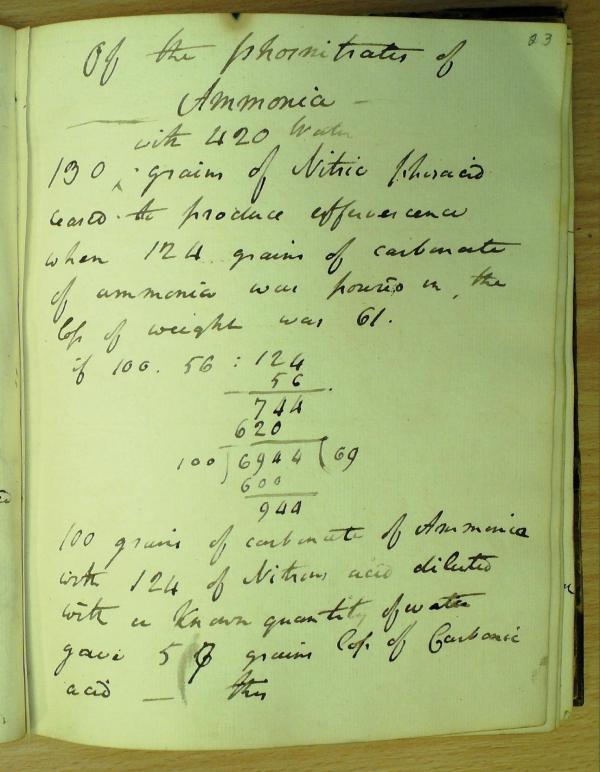 23
Of the phosnitrates of
Ammonia —
with 420 Water
130 grains of Nitric phosacid
ceased to produce effervescence
when 124 grains of carbonate
of ammonia was poured in, the
loss of weight was 61.
if 100. 56 : 124
56
744
620
100) 6944 (69
600
944
100 grains of carbonate of Ammonia
with 124 of Nitrous acid diluted
with a known quantity of water
gave 5 grains loss of Carbonic
acid — this